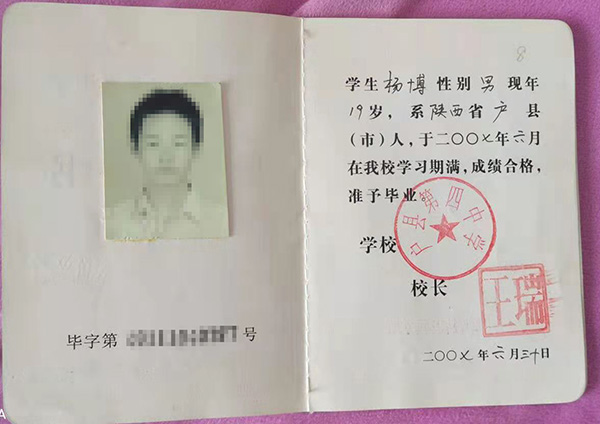 毕字第 号
8
学生 杨博 性别 男 现年
19岁，系陕西省 户 县
（市）人，于二〇〇七年六月
在我校学习期满，成绩合格，
准予毕业
户县第四中学
学校
校长
王瑞
二〇〇七年六月三十日
A